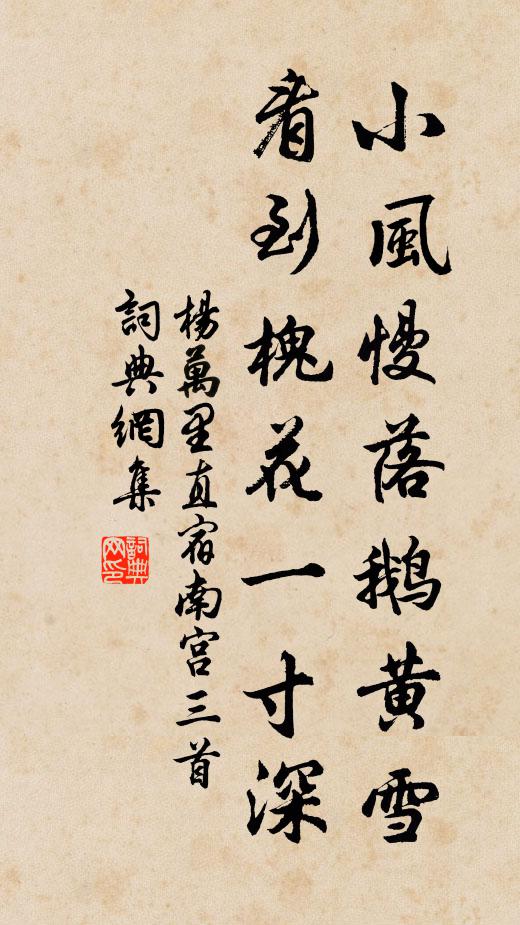 小風慢落鵝黃雪
看到槐花一寸深
楊萬里直宿南宮三首
詞典網集
詞典網印